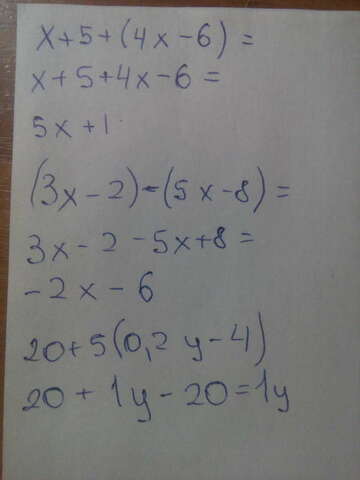 x+5+(4x-6)=
x+5+4x-6=
5x+1
(3x-2)-(5x-8)=
3x-2-5x+8=
-2x-6
20+5(0,2y-4)
20+1y-20=1y